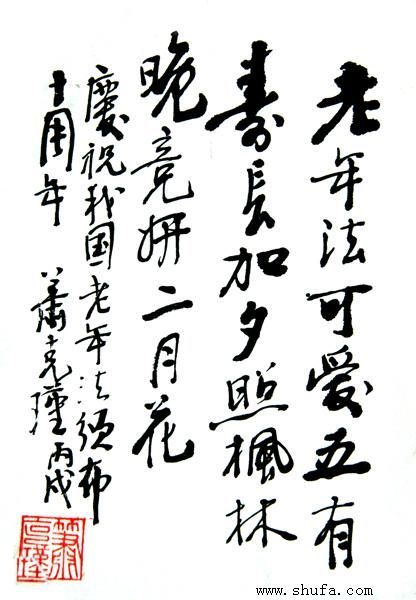 老年法可爱五有
寿長加夕照楓林
晚竞妍二月花
慶祝我国老年法颁布
十周年 萧克瑾 丙戌
萧克瑾
www.shufa.com